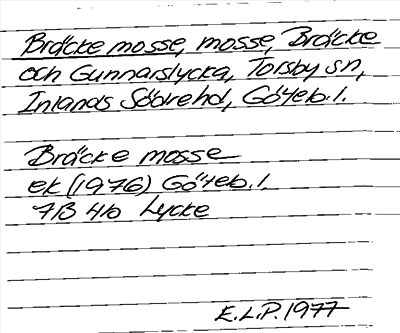 Bräcke mosse, mosse, Bräcke
och Gunnarslycka, Torsby sn,
Inlands Södrehd, Göteb. l.
Bräcke mosse
ek (1976) Göteb. l.
7B 4b Lycke
E.L.P. 1977